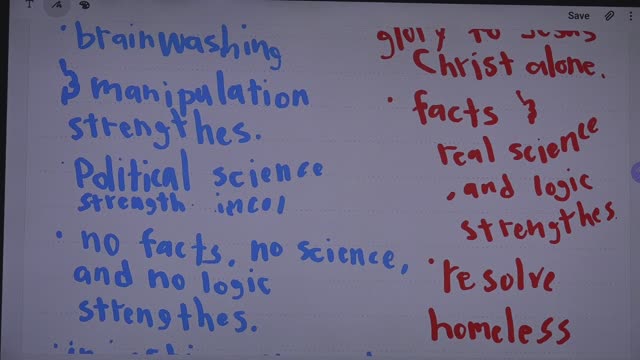 T
Save
• brainwashing
& manipulation
strengthes.
• Political science
strength
• no facts, no science,
and no logic
strengthes.
glory to Jesus
Christ alone.
• facts &
real science
, and logic
strengthes.
• resolve
homeless